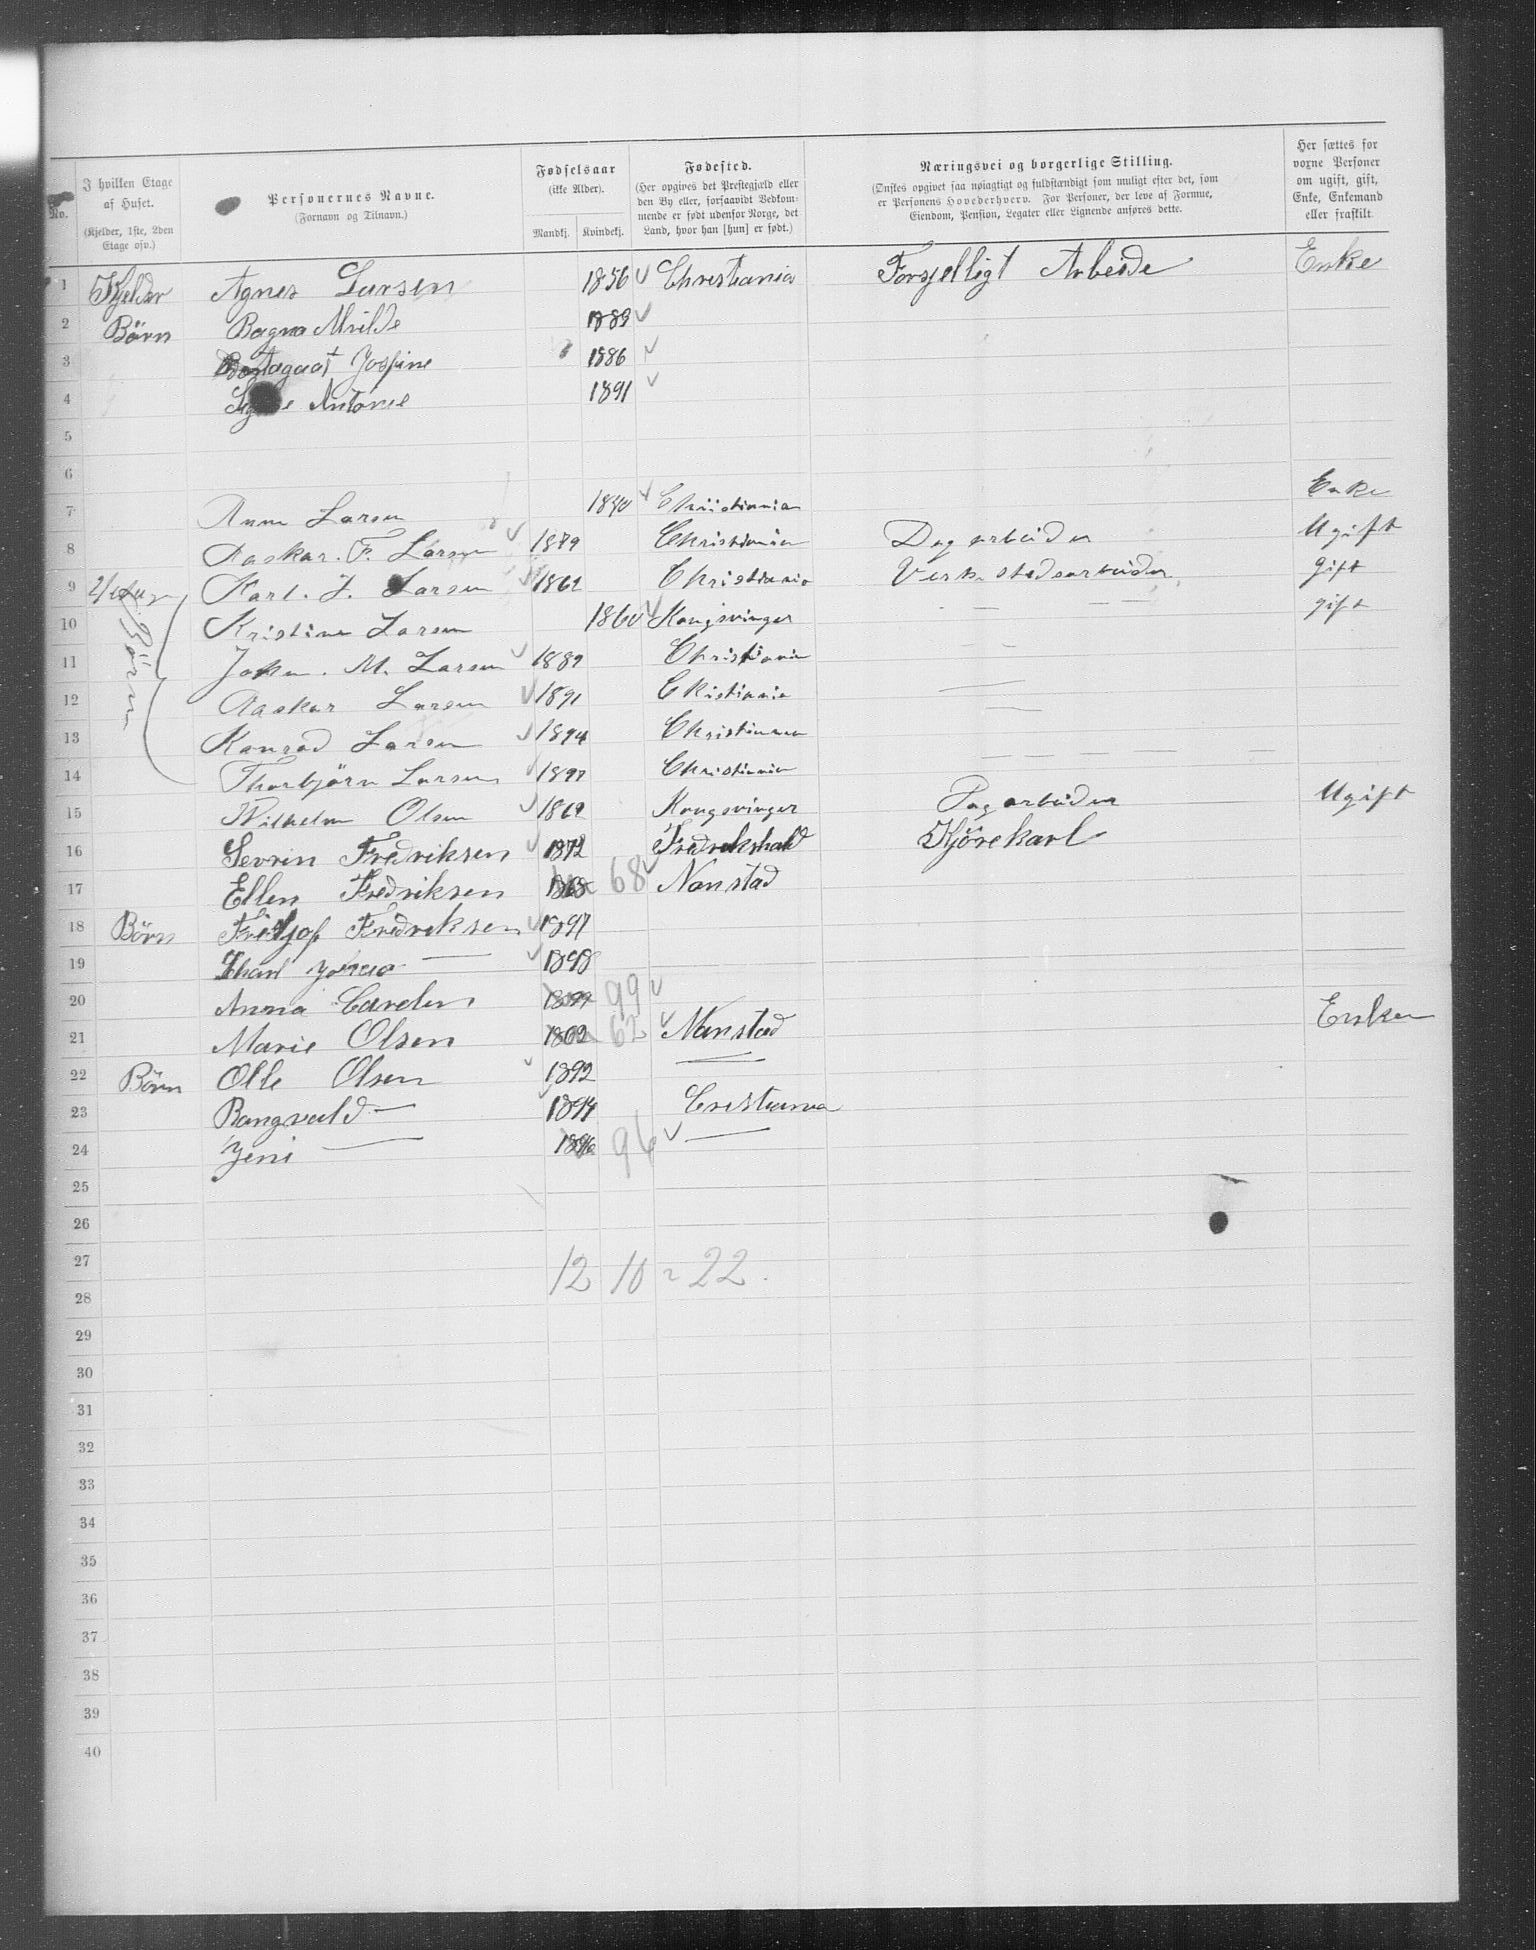 No. I hvilken Etage af Huset. (Kjelder, 1ste, 2den Etage osv.) Personernes Navne. (Fornavn og Tilnavn.) Fødselsaar (ikke Alder). Mandkj. Kvindekj. Fødested. (Her opgives det Prestegjæld eller den By eller, forsaavidt Vedkommende er født udenfor Norge, det Land, hvor han [hun] er født.) Næringsvei og borgerlige Stilling. (Ønskes opgivet saa nøiagtigt og fuldstændigt som muligt efter det, som er Personens Hovederhverv. For Personer, der leve af Formue, Eiendom, Pension, Legater eller Lignende anføres dette. Her sættes for voxne Personer om ugift, gift, Enke, Enkemand eller fraskilt.
1 Kjelder Agnes Larsen 1856 Christiania Forsjelligt Arbeide Enke
2 Børn Bagna 1889
3 Josfine 1886
4 Antonie 1891
5
6
7 Anna Larsen Christiania Enke
8 Aaskar. F. Larsen 1879 Christiania Dagarbeider Ugift
9 2/etag Karl. J. Larsen 1862 Christiania Verkstedsarbeider gift
10 Børn Kristine Larsen 1860 Kongsvinger gift
11 Johan. M. Larsen 1889 Christiania
12 Aaskar Larsen 1891 Christiania
13 Konrad Larsen 1894 Christiania
14 Thorbjörn Larsen 1897 Christiania
15 Wilhelm Olsen 1869 Kongsvinger Dagarbeider Ugift
16 Sevrin Fredriksen 1872 Fredrikshald Kjörekarl
17 Ellen Fredriksen 1868 68 Nanstad
18 Börn Fritjof Fredreksen 1897
19 Charl Johan — 1898
20 Anna 1899 99
21 Marie Olsen 1862 62 Nanstad Enke
22 Börn Olle Olsen 1892 —
23 Rangvald — 1894 Cristiania
24 Jeni — 1896 96 —
25
26
27 12 10 = 22.
28
29
30
31
32
33
34
35
36
37
38
39
40